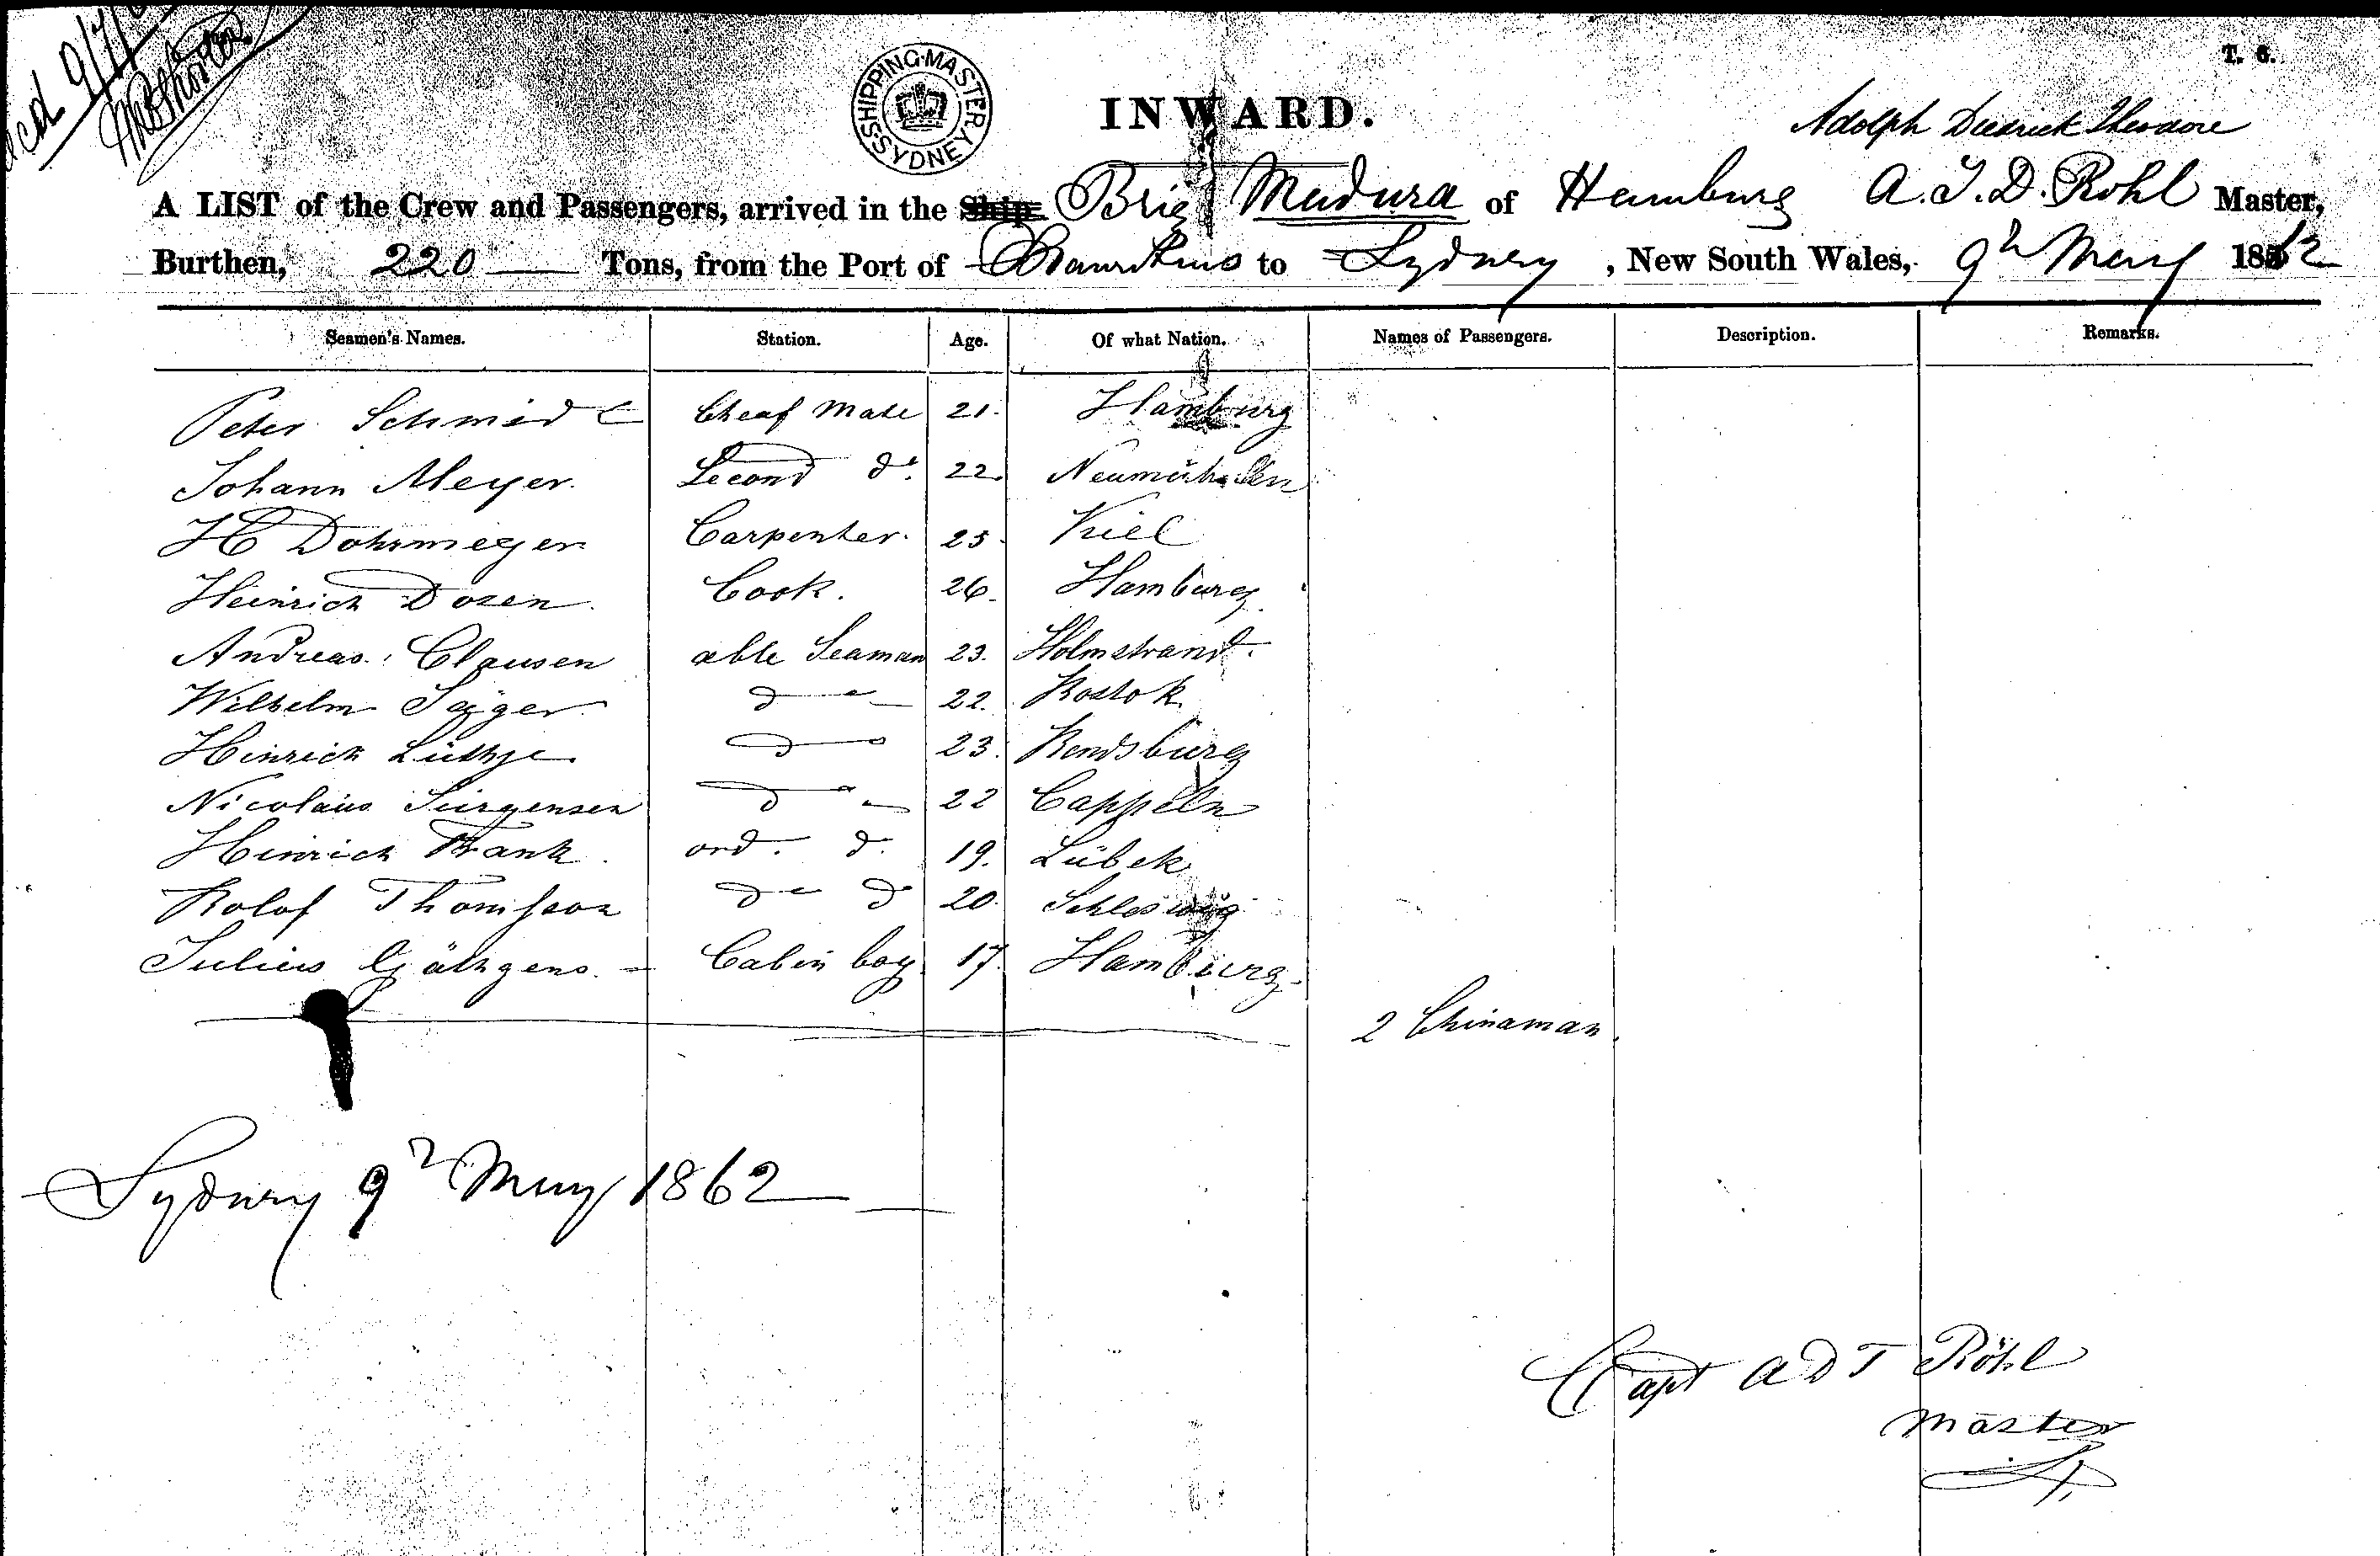 T. 6.
SHIPPING MASTER SYDNEY
INWARD.
Adolph Diedrick Theodore
A LIST of the Crew and Passengers, arrived in the Ship Brig Madura of Hamburg A. T. D. Rohl Master,
Burthen, 220 Tons, from the Port of Mauritius to Sydney, New South Wales, 9th May 1862
Seamen's Names. Station. Age. Of what Nation. Names of Passengers. Description. Remarks.
Peter Schmidt Cheaf Mate 21. Hamburg
Johann Meyer. Second do. 22. Neumühlen
H Dohrmeyer Carpenter. 25. Kiel
Heinrich Dosen. Cook. 26. Hamburg
Andreas Clausen able Seaman 23. Holmstrand.
Wilhelm Jäger. do 22. Rostok
Hinrich Lüthje do 23. Rendsburg
Nicolaus Jürgensen do 22 Cappeln
Hinrich Frank. ord. d. 19. Lübek
Rolof Thomsson do do 20. Schleswig
Julius Gäthgens. Cabin boy 17. Hamburg.
2 Chinaman.
Sydney 9th May 1862
Capt A D T Röhl
Master